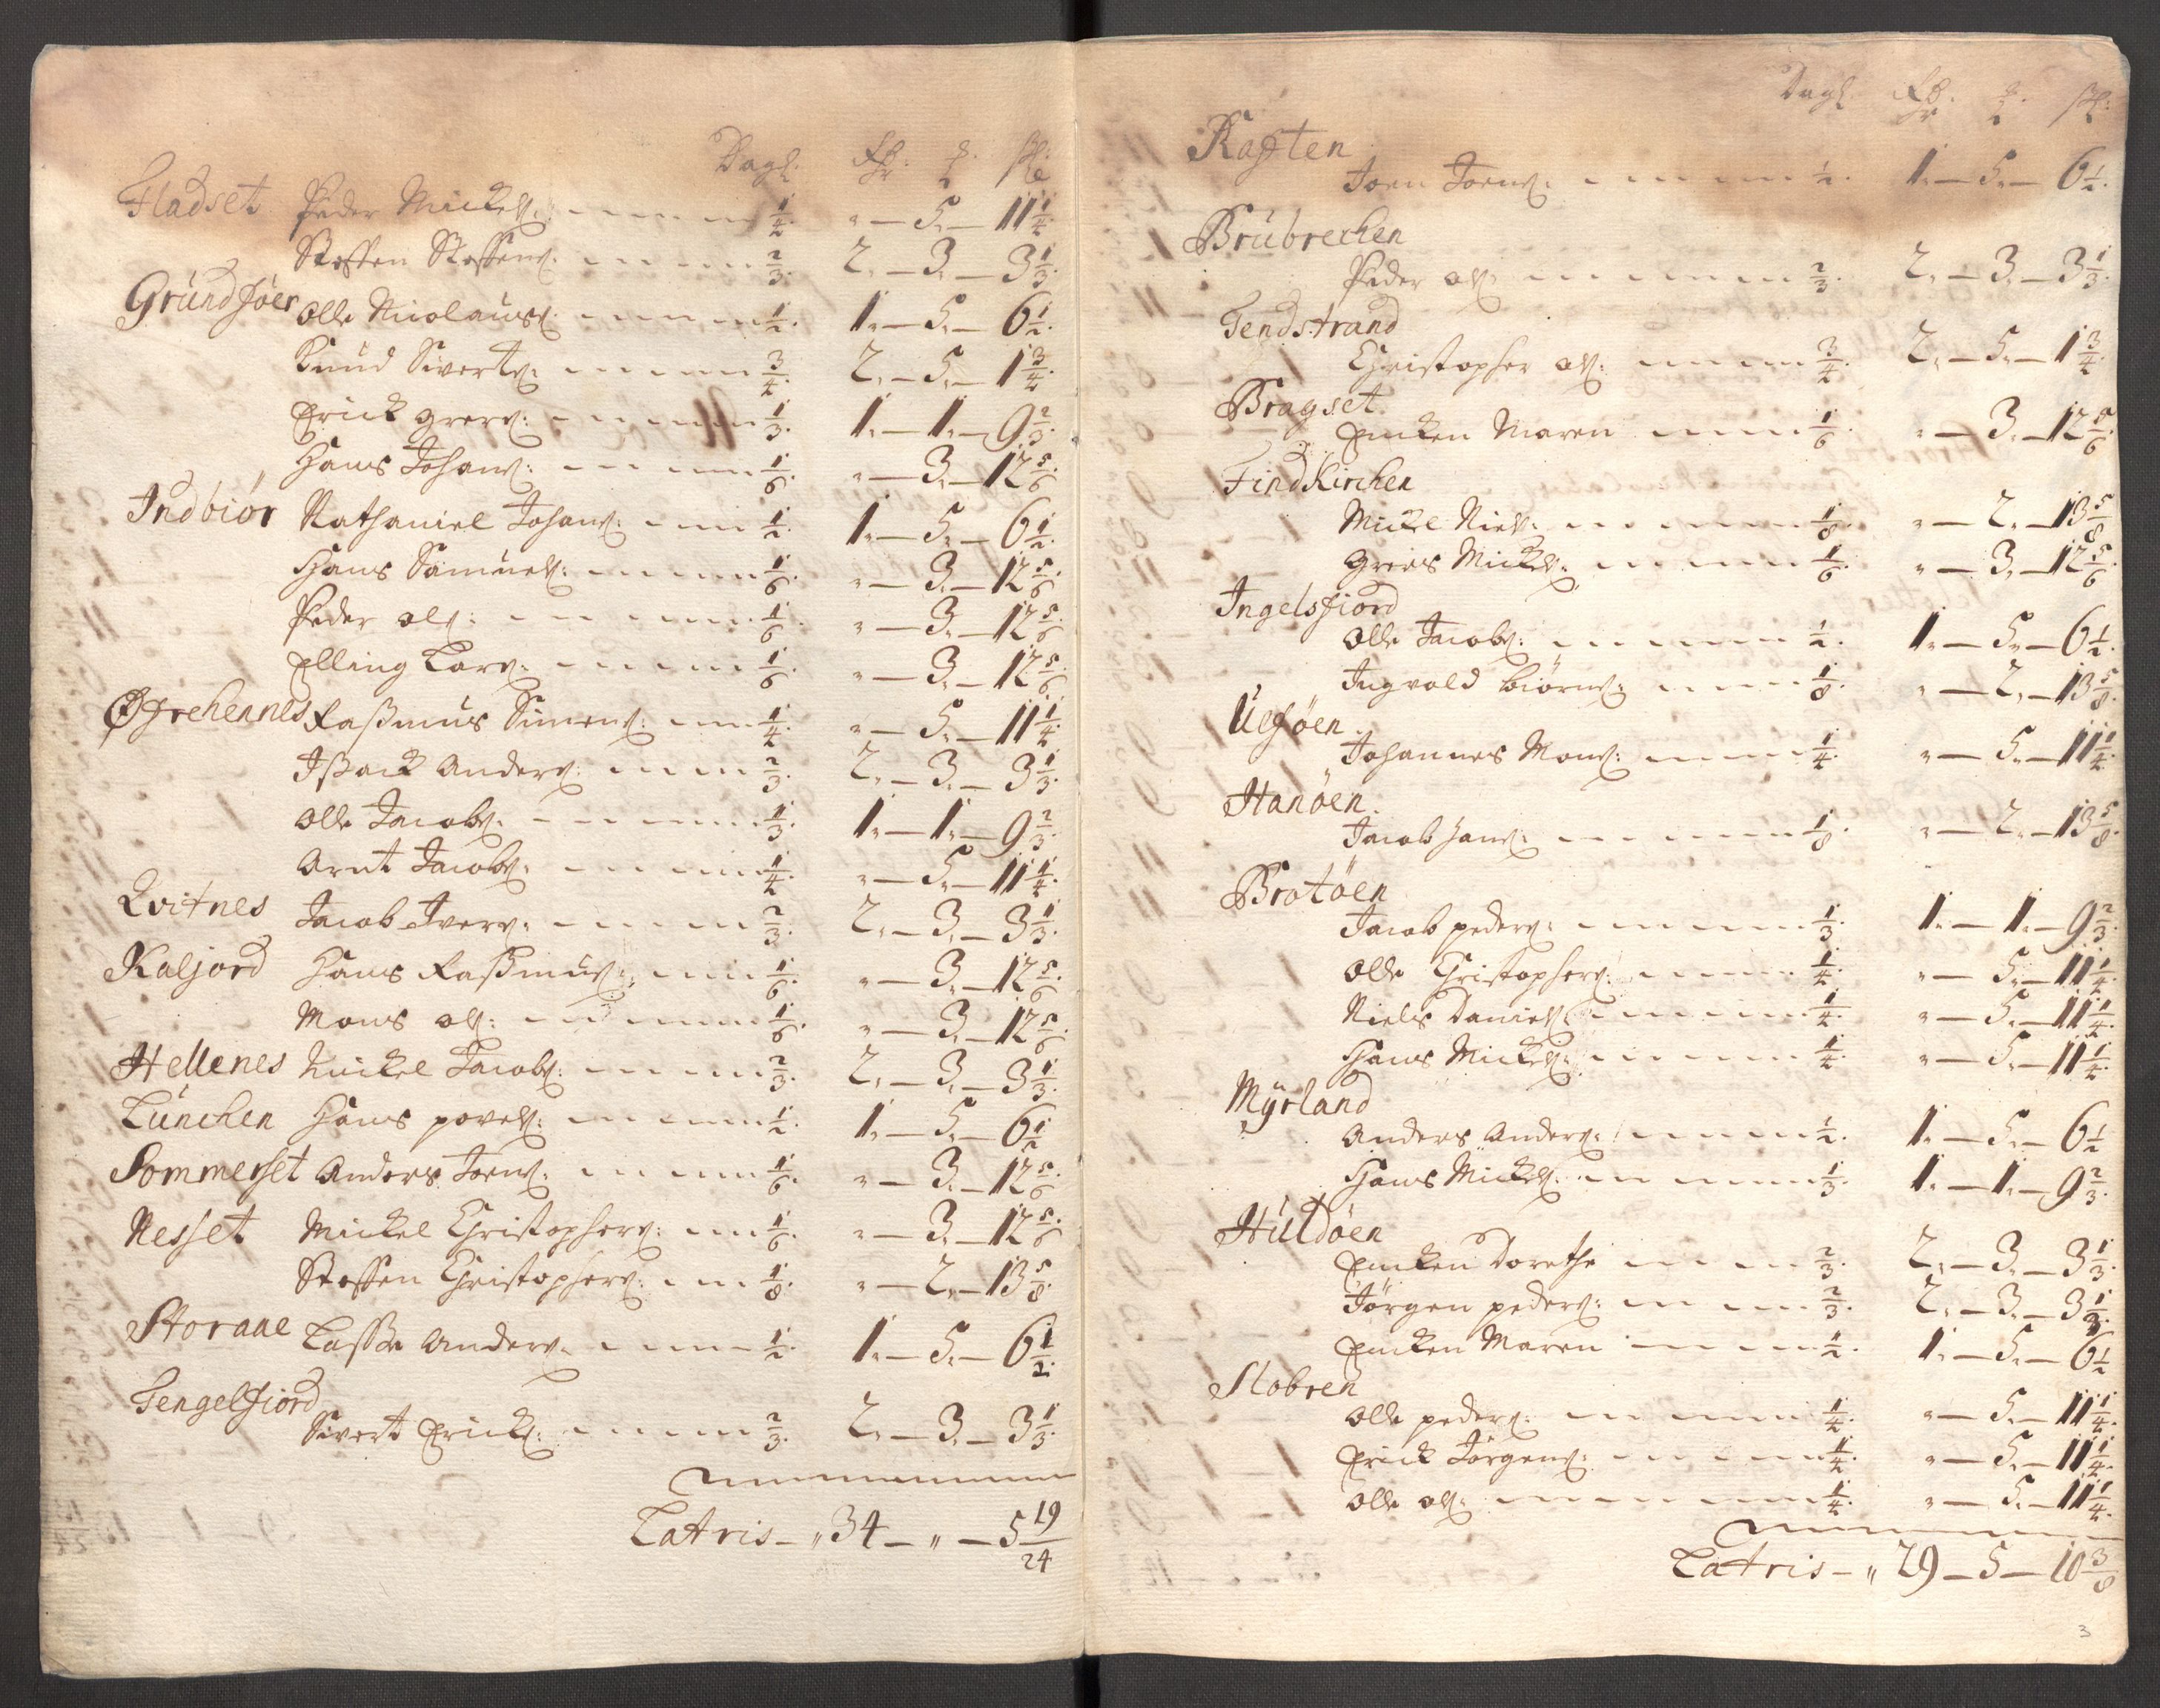 Dagl: Rdr: ℔: ßl:
Fladset Peder Mickels: 1/4. " – 5. – 11 1/4
Steffen Steffens: 2/3. 2. – 3. – 3 1/3.
Grundføer Olle Nicolaus: 1/2. 1. – 5. – 6 1/2.
Knud Siverts: 3/4. 2. – 5. – 1 3/4
Erick Grers: 1/3. 1. – 1. – 9 2/3.
Hans Johans: 1/6. " – 3. – 12 5/6.
Indbiör Nathaniel Johans: 1/2. 1. – 5. – 6 1/2.
Hans Samuels: 1/6. " – 3. – 12 5/6.
Peder Ols: 1/6. " – 3. – 12 5/6
Elling Lars: 1/6. " – 3. – 12 5/6.
Øgrehennes Rasmus Simens: 1/4. " – 5. – 11 1/4
Isack Anders: 2/3. 2. – 3. – 3 1/3.
Olle Jacobs: 1/3. 1. – 1. – 9 2/3.
Arnt Jacobs: 1/4. " – 5. – 11 1/4.
Qvitnes Jacob Ivers: 2/3. 2. – 3. – 3 1/3.
Kaljord Hans Rasmus: 1/6. " – 3. – 12 5/6
Mons Ols: 1/6. " – 3. – 12 5/6.
Hellenes Mickel Jacobs: 2/3. 2. – 3. – 3 1/3.
Lünchen Hans Povels: 1/2. 1. – 5. – 6 1/2
Sommerset Anders Joens: 1/6. " – 3. – 12 5/6
Nesset Mickel Christophers: 1/6. " – 3. – 12 5/6
Steffen Christophers: 1/8. " – 2. – 13 5/8.
Storaae Lasse Anders: 1/2. 1. – 5. – 6 1/2.
Tengelfiord
Sivert Ericks: 2/3. 2. – 3. – 3 1/3.
Latris – " 34 – " – 5 19/24
Dagl: Rdr: ℔: ßl:
Kasten
Joen Joens: 1/2. 1. – 5. – 6 1/2.
Brübrechen
Peder Ols: 2/3. 2. – 3. – 3 1/3.
Tendstrand
Christopher Ols: 3/4. 2. – 5. – 1 3/4.
Bragset
Encken Maren 1/6. " – 3. – 12 5/6
Findkirchen
Mickel Niels: 1/8. " – 2. – 13 5/8
Greers Mickels: 1/6. " – 3. – 12 5/6.
Ingelsfiord
Olle Jacobs: 1/2. 1. – 5. – 6 1/2.
Ingvald Biörns: 1/8. " – 2. – 13 5/8.
Ulføen
Johannes Mons: 1/4 " – 5. – 11 1/4.
Hanöen.
Jacob Hans: 1/8. " – 2. – 13 5/8.
Brotöen
Jacob Peders: 1/3. 1. – 1. – 9 2/3.
Olle Christophers: 1/4. " – 5. – 11 1/4
Niels Daniels: 1/4. " – 5. – 11 1/4.
Hans Mickels: 1/4 " – 5. – 11 1/4.
Mÿrland
Anders Anders: 1/2. 1. – 5. – 6 1/2
Hans Mickels: 1/3. 1. – 1. – 9 2/3.
Hüldöen
Encken Dorethe 2/3. 2. – 3. – 3 1/3.
Jörgen Peders: 2/3. 2. – 3. – 3 1/3.
Encken Maren 1/2. 1. – 5. – 6 1/2
Slobren
Olle Peders: 1/4. " – 5. – 11 1/4.
Erick Jörgens: 1/4. " – 5. – 11 1/4.
Olle Ols: 1/4. " – 5. – 11 1/4.
Latris – " 29 – 5 – 10 3/8
3